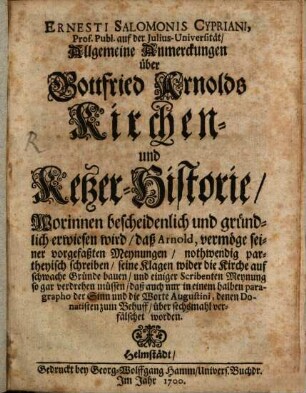 ERNESTI SALOMONIS CYPRIANI,
Prof. Publ. auf der Julius-Universität/
Allgemeine Anmerckungen
über
Gottfried Arnolds
Kirchen-
und
Ketzer-Historie/
Worinnen bescheidenlich und gründ-
lich erwiesen wird/ daß Arnold, vermöge sei-
ner vorgefaßten Meynungen/ nothwendig par-
theyisch schreiben/ seine Klagen wider die Kirche auf
schwache Gründe bauen/ und einiger Scribenten Meynung
so gar verdrehen müssen/ daß auch nur in einem halben para-
grapho der Sinn und die Worte Augustini, denen Do-
natisten zum Behuff/ über sechsmahl ver-
fälschet worden.
Helmstädt/
Gedruckt bey Georg-Wolffgang Hamm/ Univers. Buchdr.
Im Jahr 1700.